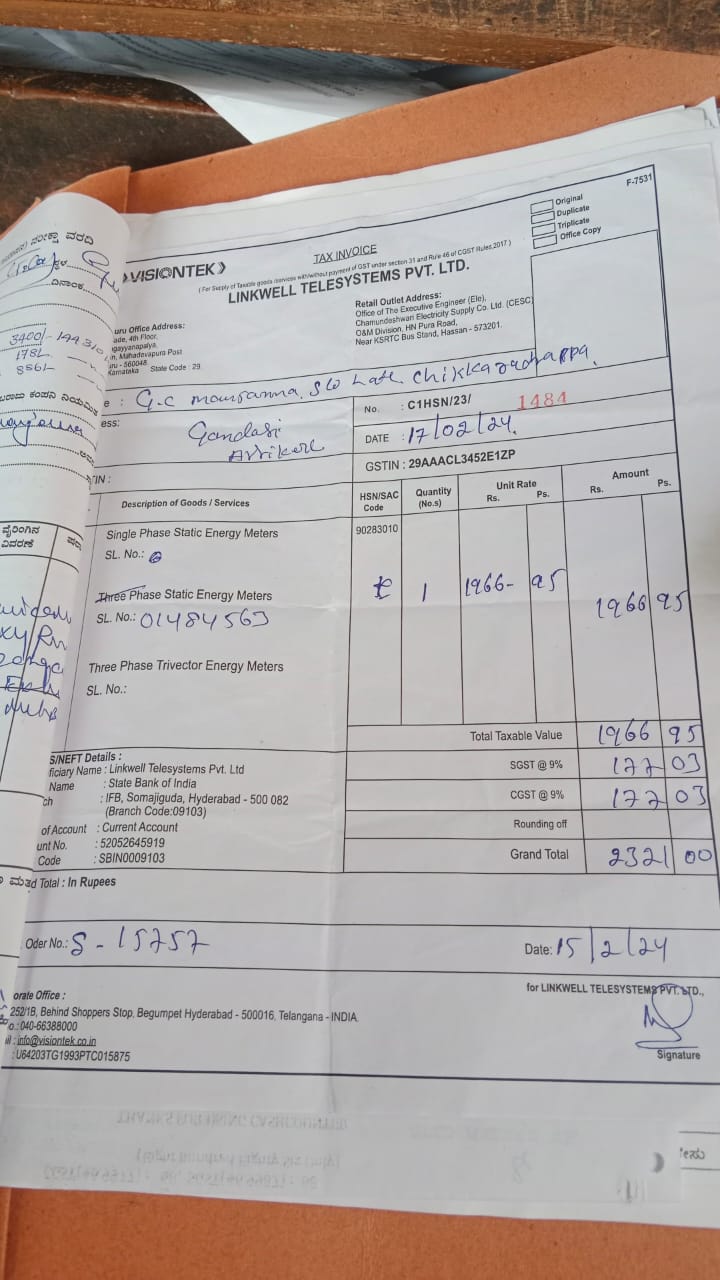 F-7531
Original
Duplicate
Triplicate
Office Copy
VISIONTEK
TAX INVOICE
( For Supply of Taxable goods /services with/without payment of GST under section 31 and Rule 46 of CGST Rules,2017 )
LINKWELL TELESYSTEMS PVT. LTD.
uru Office Address:
ade, 4th Floor,
gayyanapalya,
n, Mahadevapura Post
uru - 560048.
Karnataka State Code : 29.
Retail Outlet Address:
Office of The Executive Engineer (Ele),
Chamundeshwari Electricity Supply Co. Ltd. (CESC)
O&M Division, HN Pura Road,
Near KSRTC Bus Stand, Hassan - 573201.
e : G.C S/o Late.
ess: Gandasi
No. : C1HSN/23/ 1484
DATE : 17/02/24.
GSTIN : 29AAACL3452E1ZP
TIN :
Description of Goods / Services
HSN/SAC Code
Quantity (No.s)
Unit Rate
Rs. Ps.
Amount
Rs. Ps.
Single Phase Static Energy Meters
90283010
SL. No.:
Three Phase Static Energy Meters
1 1966- 95 1966 95
SL. No.: 01484563
Three Phase Trivector Energy Meters
SL. No.:
Total Taxable Value 1966 95
SGST @ 9% 177 03
CGST @ 9% 177 03
Rounding off
Grand Total 2321 00
S/NEFT Details :
ficiary Name : Linkwell Telesystems Pvt. Ltd
Name : State Bank of India
ch : IFB, Somajiguda, Hyderabad - 500 082
(Branch Code:09103)
of Account : Current Account
unt No. : 52052645919
Code : SBIN0009103
d Total : In Rupees
Oder No.: S - 15757
Date: 15/2/24
orate Office :
252/1B, Behind Shoppers Stop, Begumpet Hyderabad - 500016, Telangana - INDIA.
o.: 040-66388000
il : info@visiontek.co.in
: U64203TG1993PTC015875
for LINKWELL TELESYSTEMS PVT. LTD.,
Signature
ಪರೀಕ್ಷಾ ವರದಿ
ದಿನಾಂಕ
3400/-
178L
856L
ವೈರಿಂಗಿನ
ವಿವರಣೆ